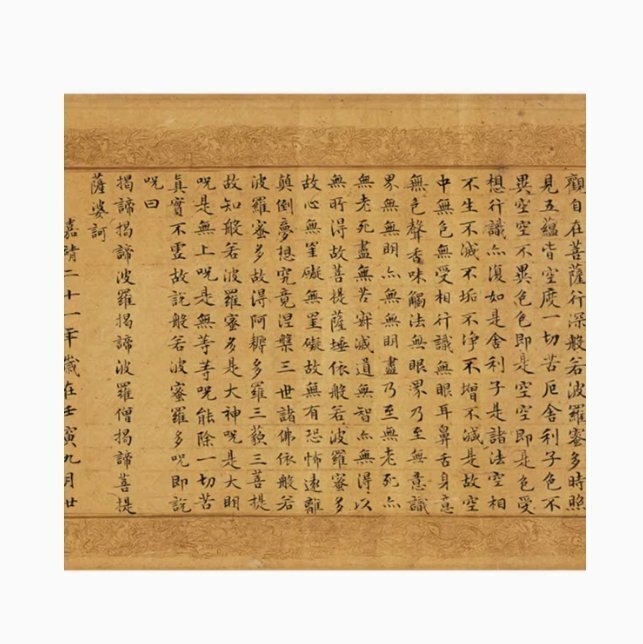 觀自在菩薩行深般若波羅蜜多時照
見五蘊皆空度一切苦厄舍利子色不
異空空不異色色即是空空即是色受
想行識亦復如是舍利子是諸法空相
不生不滅不垢不淨不增不減是故空
中無色無受想行識無眼耳鼻舌身意
無色聲香味觸法無眼界乃至無意識
界無無明亦無無明盡乃至無老死亦
無老死盡無苦寂滅道無智亦無得以
無所得故菩提薩埵依般若波羅蜜多
故心無罣礙無罣礙故無有恐怖遠離
顛倒夢想究竟涅槃三世諸佛依般若
波羅蜜多故得阿耨多羅三藐三菩提
故知般若波羅蜜多是大神呪是大明
呪是無上呪是無等等呪能除一切苦
真實不虛故說般若波羅蜜多呪即說
呪曰
揭諦揭諦波羅揭諦波羅僧揭諦菩提
薩婆訶
嘉靖二十一年歲在壬寅九月廿